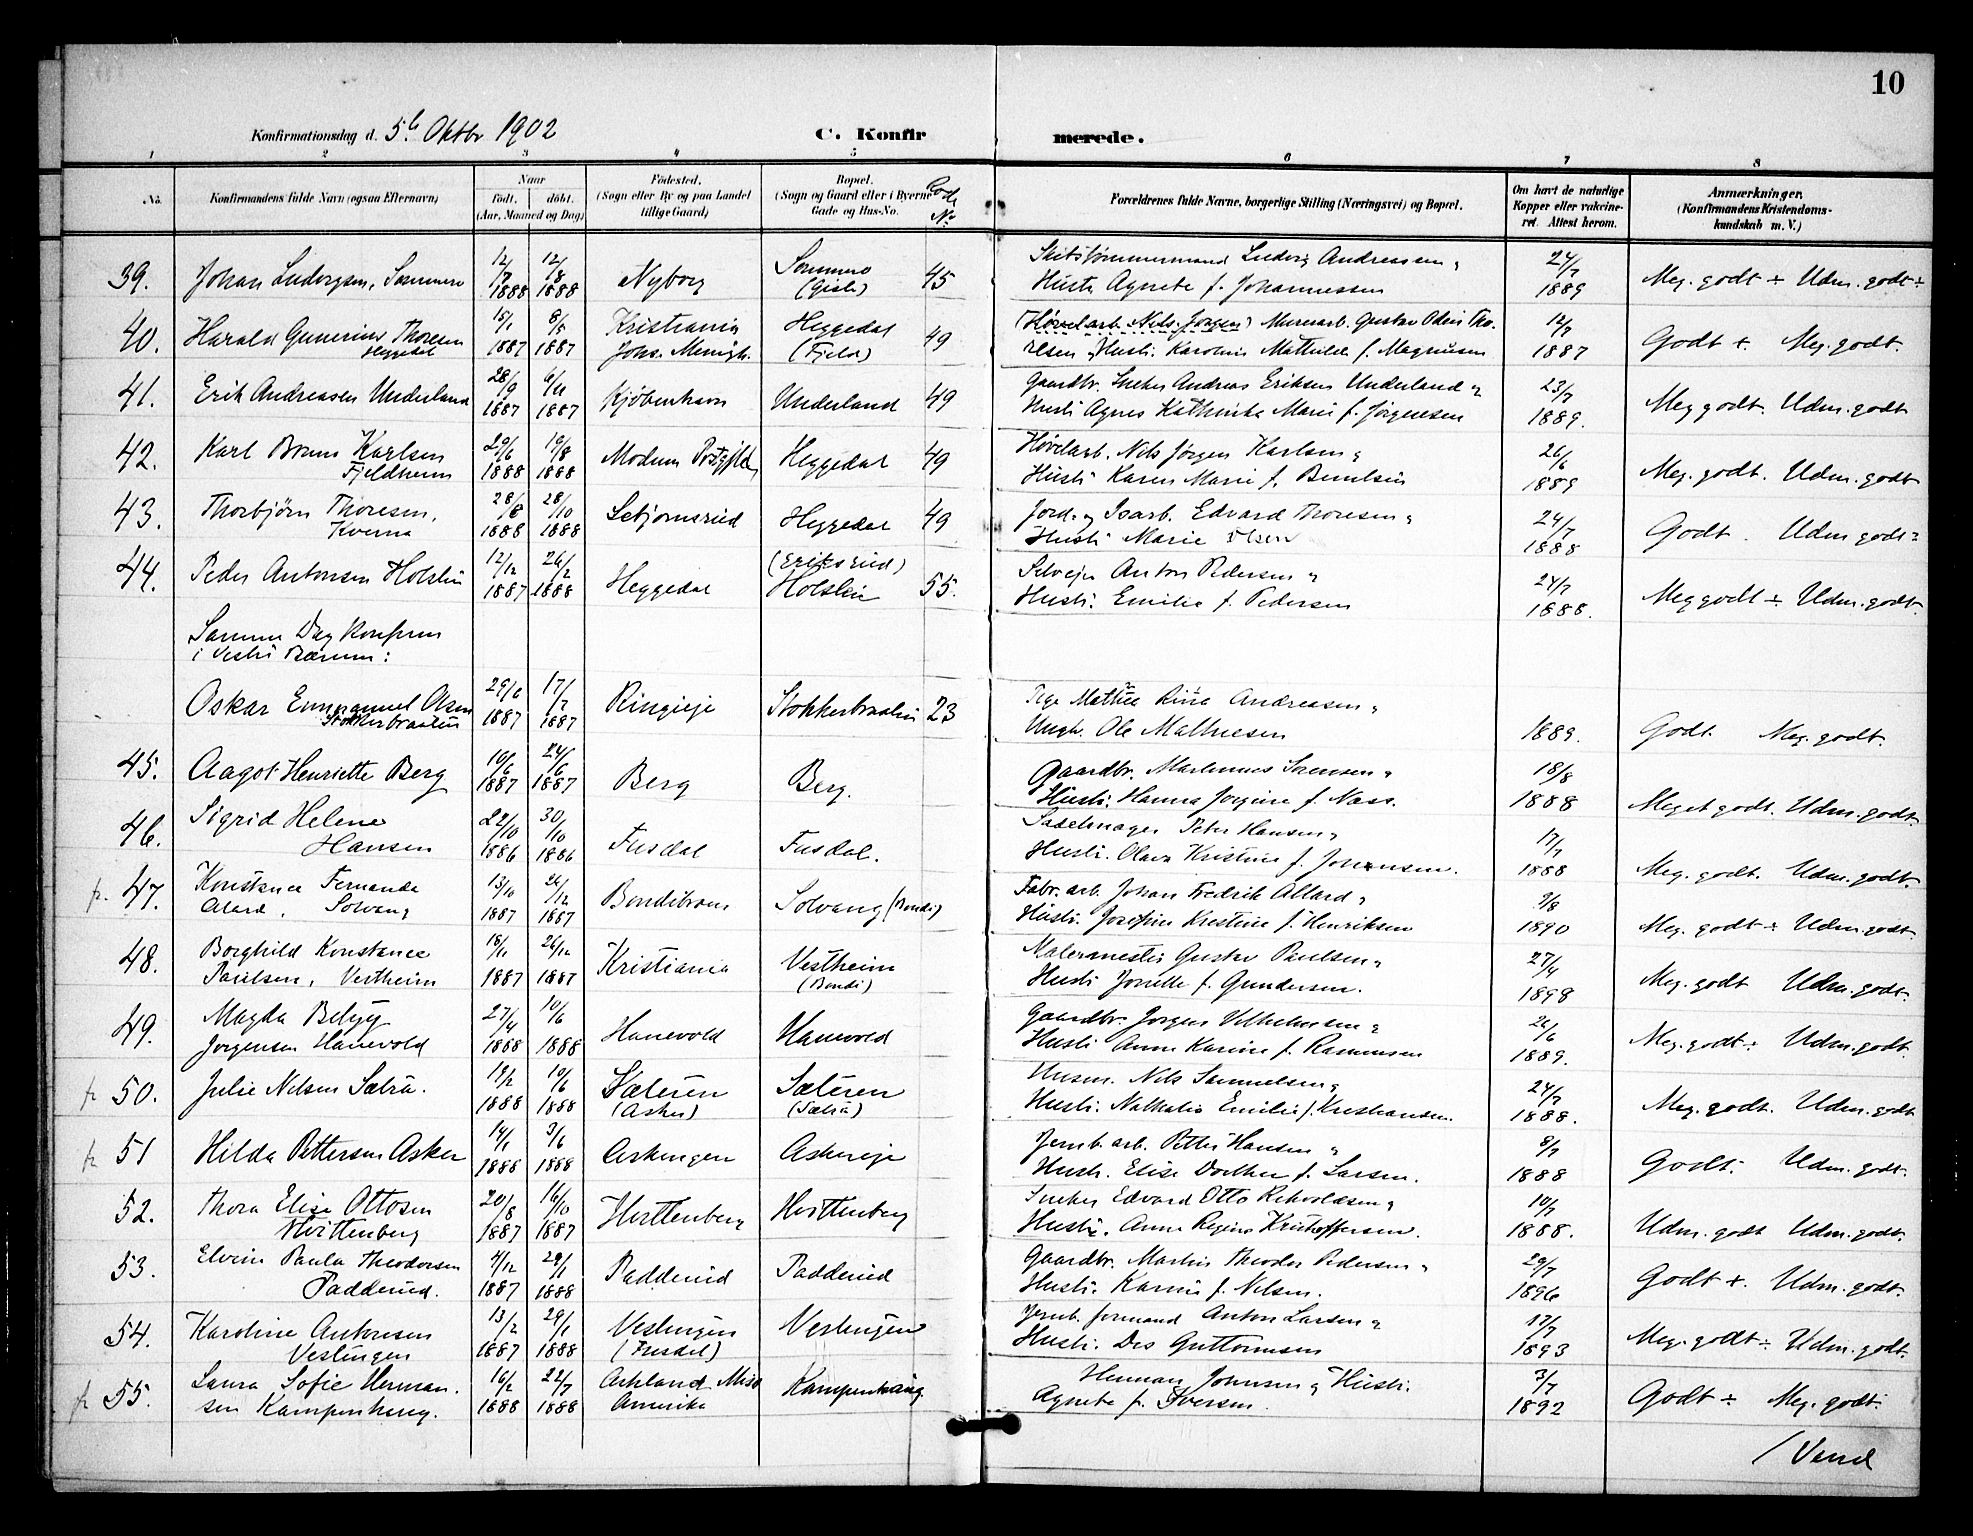 10
Konfirmationsdag d. 5te Oktbr 1902 C. Konfirmerede.
1 2 3 4 5 6 7 8
No. Konfirmandens fulde Navn (ogsaa Efternavn) Naar født. døbt. (Aar, Maaned og Dag) Fødested. (Sogn eller By og paa Landet tillige Gaard) Bopæl. (Sogn og Gaard eller i Byerne Gade og Hus-No. Rode No. Forældrenes fulde Navne, borgerlige Stilling (Næringsvei) og Bopæl. Om havt de naturlige Kopper eller vakcineret. Attest herom. Anmærkninger. (Konfirmandens Kristendomskundskab m. V.)
39. Johan Ludvigsen, Sommero 12/7 1888 12/8 1888 Nyborg Sommero (Gisle) 45 Ludvig Andreassen & Hustr. Agnete f. Johannessen 24/7 1889 Meg. godt ÷ Udm. godt ÷
40. Harald Gunerius Thoresen Heggedal 15/1 1887 8/5 1887 Kristiania Johs. Menigh. Heggedal (Fjeld) 49 (Høvelarb. Nils Jørgen) Murerarb. Gustav Odin Thoresen & Hustr. Karoline Mathilde f. Magnusen 12/7 1887 Godt +. Meg. godt.
41. Erik Andreasen Underland 28/9 1887 6/11 1887 Kjøbenhavn Underland 49 Gaardbr. Sneker Andreas Eriksen Underland & Hustr. Agnes Kathinka Marie f. Jørgensen 23/7 1889. Meg godt. Udm. godt
42. Karl Bruun Karlsen Fjeldheim 29/6 1888 19/8 1888 Modum Præstgjeld Heggedal 49 Høvelarb. Nils Jørgen Karlsen & Hustr. Karen Marie f. 26/6 1889 Meg. godt. Udm. godt
43. Thorbjørn Thoresen, Kverna 28/8 1888 28/10 1888 Heggedal 49 Jord- og Isarb. Edvard Thoresen & Hustr. Marie Olsen 24/7 1888 Godt. Udm godt ÷
44. Peder Antonsen Holstin 12/12 1887 26/2 1888 Heggedal (Eriksrud) Holstin 55. Selvejer Anton Pedersen & Hustr. Emilie f. Pedersen 24/7 1888. Meg godt ÷ Udm. godt.
Samme Dag konfirm i Vestre Bærum:
Oskar Emmanuel Olsen Stokkerbraaten 29/6 1887 17/7 1887 Ringieje Stokkerbraaten 23 Pige Mathea Andreasen & Ungk. Ole Mathiesen 1889. Godt. Meg. godt.
45. Aagot Henriette Berg 10/6 1887 24/6 1887 Berg Berg. Gaardbr. Martinius Sørensen & Hustr. Hanna Jorgine f. Næss. 18/8 1888 Meget godt. Udm. godt.
46. Sigrid Helene Hansen 22/10 1886 30/10 1886 Fusdal Fusdal. Sadelmager Peter Hansen & Hustr. Olava Kristine f. Johansen. 17/7 1888 Meg. godt. Udm. godt.
fr. 47. Konstance Fernanda Alard, Solvang 13/10 1887 26/12 1887 Bondibraat Solvang (Bondi) Fabr. arb. Johan Fredrik Allard & Hustr. Josefine Kristine f. Henriksen 9/8 1890 Meg. godt ÷ Udm. godt.
48. Borghild Konstance Paulsen, Vestheim 18/11 1887 26/12 1887 Kristiania Vestheim (Bondi) Malermester Gustav Paulsen & Hustr. Josette f. Gundersen. 27/4 1898 Meg. godt Udm. godt.
49. Magda Betzy Jørgensen Hanevold 27/4 1888 10/6 1888 Hanevold Hanevold Gaardbr. Jørgen Vilhelmsen & Hustr. Anne Karine f. Rasmussen 26/6 1889. Meg. godt ÷ Udm. godt.
fr 50. Julie Nelsen Sætra. 19/2 1888 10/6 1888 Sæteren (Asker) Sæteren (Sætra) Husm. Nils Samuelsen & Hustr. Nathalia Emilie f. Kristiansen. 24/7 1888. Meg. godt. Udm. godt
fr 51 Hilda Pettersen Asker 14/1 1888 3/6 1888 Askengen Askereje Jernb. arb. Petter Hansen & Hustr. Elise Dorthea f. Larsen. 8/7 1888 Godt. Udm. godt.
52. Thora Elise Ottosen Hvittenberg 20/8 1887 16/10 1887 Hvittenberg Hvittenberg Snekker Edvard Otto & Hustr. Anna Regine Kristoffersen. 10/7 1888. Udm. godt Udm. godt.
53. Elvine Paula Theodorsen Padderud. 4/12 1887 29/1 1888 Padderud Padderud Gaardbr. Martin Theodor Pedersen & Hustr. Karine f. Nilsen. 29/7 1896 Godt +. Udm. godt.
54. Karoline Antonsen Vestengen 13/2 1887 29/1 1888 Vestengen (Fusdal) Vestengen Jernb. formand Anton Larsen & Hustr. Guttormsen 17/7 1893 Meg. godt ÷ Udm. godt.
fr 55. Laura Sofie Hermansen Kampenhaug. 16/2 1888 22/7 1888 Ashland Amerika Kampenhaug Herman Johnsen & Hustr. Agnete f. Iversen. 3/7 1892 Godt ÷ Meg. godt.
/ Vend